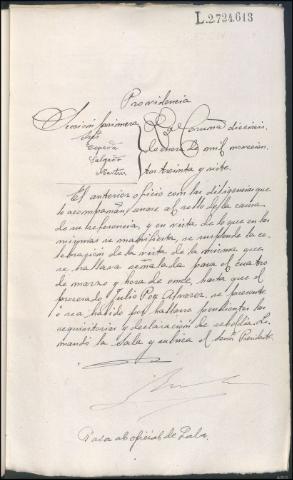 L.2724.613
Providencia
Sección primera La Coruña dieciseis
Sres
Salgado de mil novecien
tos treinta y siete
El anterior oficio con las diligencias que
le acompañan, unase al rollo de la causa
de su referencia, y en vista de lo que en las
mismas se manifiesta, se suspende la ce-
lebración de la vista de la misma que
se hallaba señalada para el cuatro
de marzo y hora de once, hasta que el
procesado Julio Alvarez, se presente
o sea habido por hallarse pendientes las
requisitorias y declaración de rebeldía. Lo
mandó la Sala y rubrica el Señor Presidente.
Pasa al oficial de Sala.